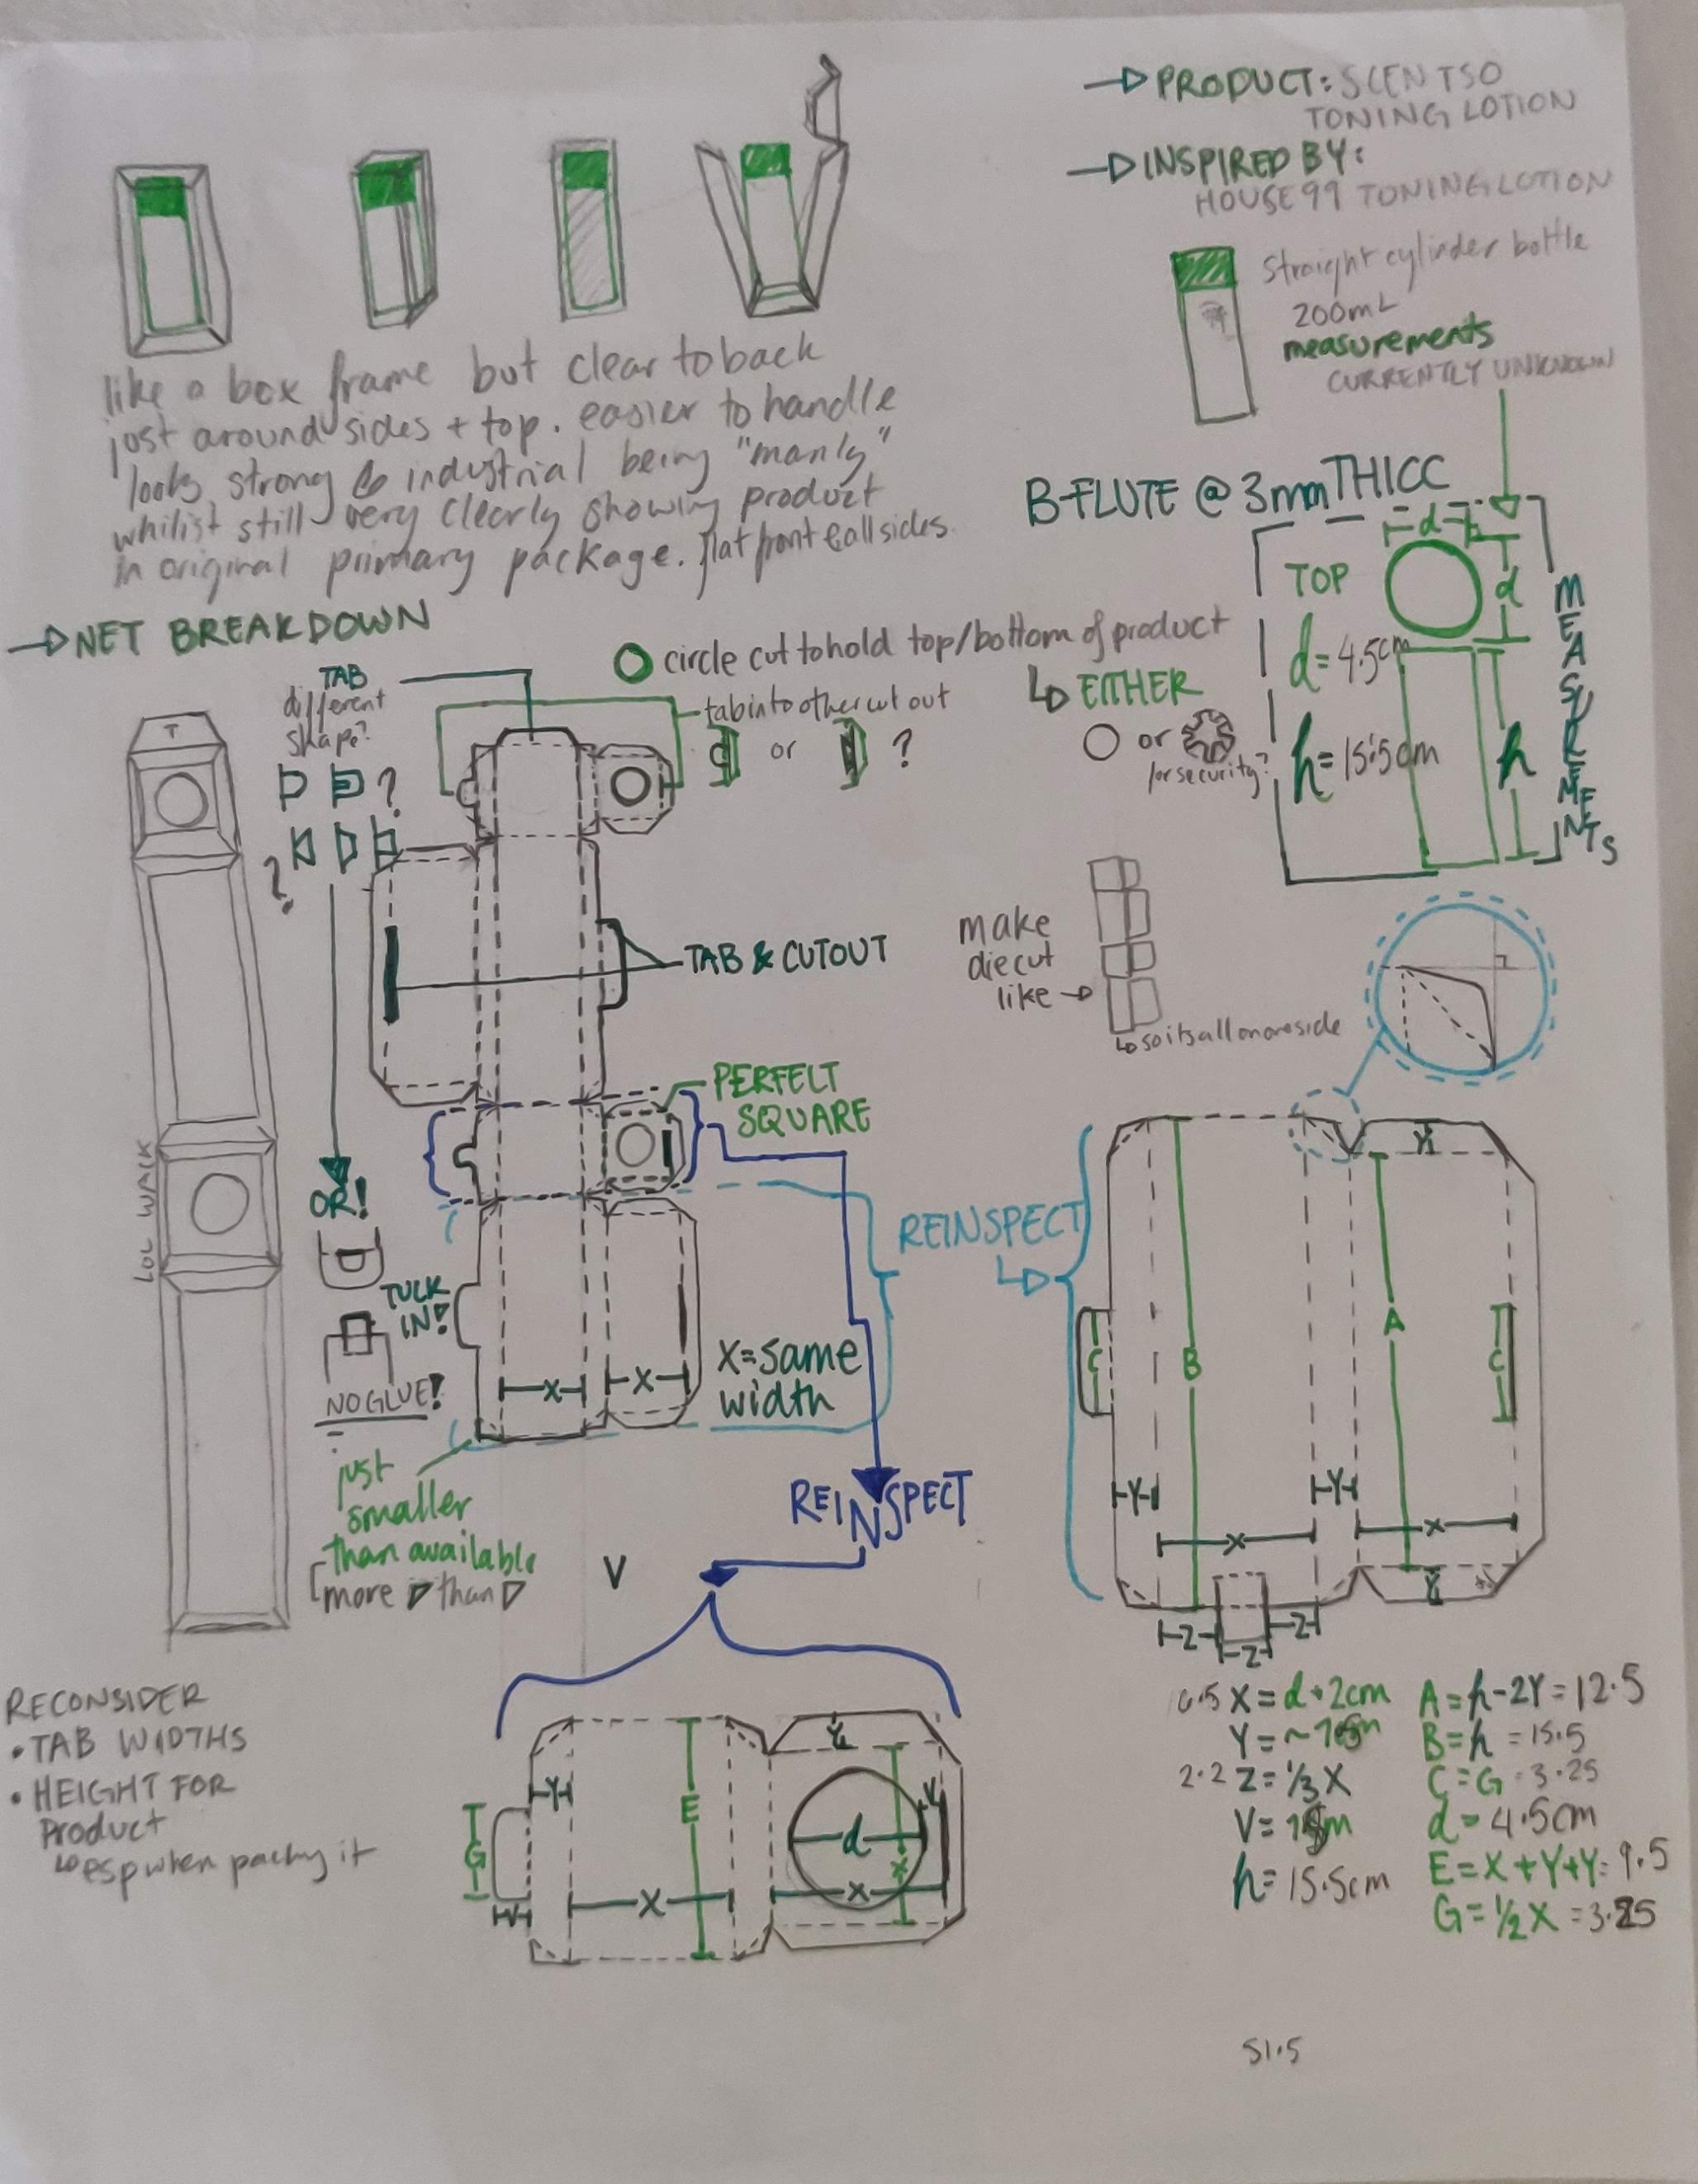 PRODUCT: SCENTSO
TONING LOTION
INSPIRED BY:
HOUSE 99 TONING LOTION
Straight cylinder bottle
200mL
measurements
CURRENTLY UNKNOWN
like a box frame but clear to back
just around sides + top. easier to handle
looks strong & industrial being "manly"
whilist still very clearly showing product
in original primary package. flat front & all sides.
B-FLUTE @ 3mm THICC
TOP
d
d
d= 4.5cm
h= 15.5cm
h
MEASUREMENTS
NET BREAKDOWN
circle cut to hold top/bottom of product
EITHER
or
for security?
TAB
different
shape?
?
?
tab into other cut out
or
?
T
TAB & CUTOUT
make
diecut
like
so its all on one side
PERFELT
SQUARE
LOL WACK
OR!
TUCK
IN!
NO GLUE!
X
X
X=same
width
REINSPECT
just
smaller
than available
more than
V
REINSPECT
Y
A
B
C
C
Y
Y
X
X
Y
Z
Z
Z
RECONSIDER
• TAB WIDTHS
• HEIGHT FOR
Product
esp when packing it
Y
Y
E
G
V
d
X
V
X
X
6.5 X = d+2cm
Y =
2.2 Z = 1/3 X
V =
h= 15.5cm
A = h-2Y = 12.5
B = h = 15.5
C = G = 3.25
d = 4.5cm
E = X + Y + Y = 9.5
G = 1/2 X = 3.25
51.5